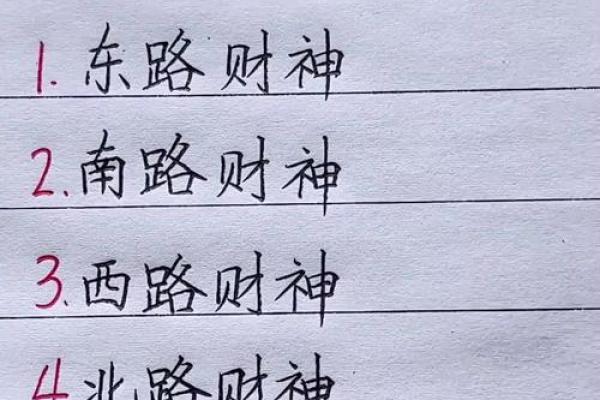 1. 东路财神
2. 南路财神
3. 西路财神
4 北路财神